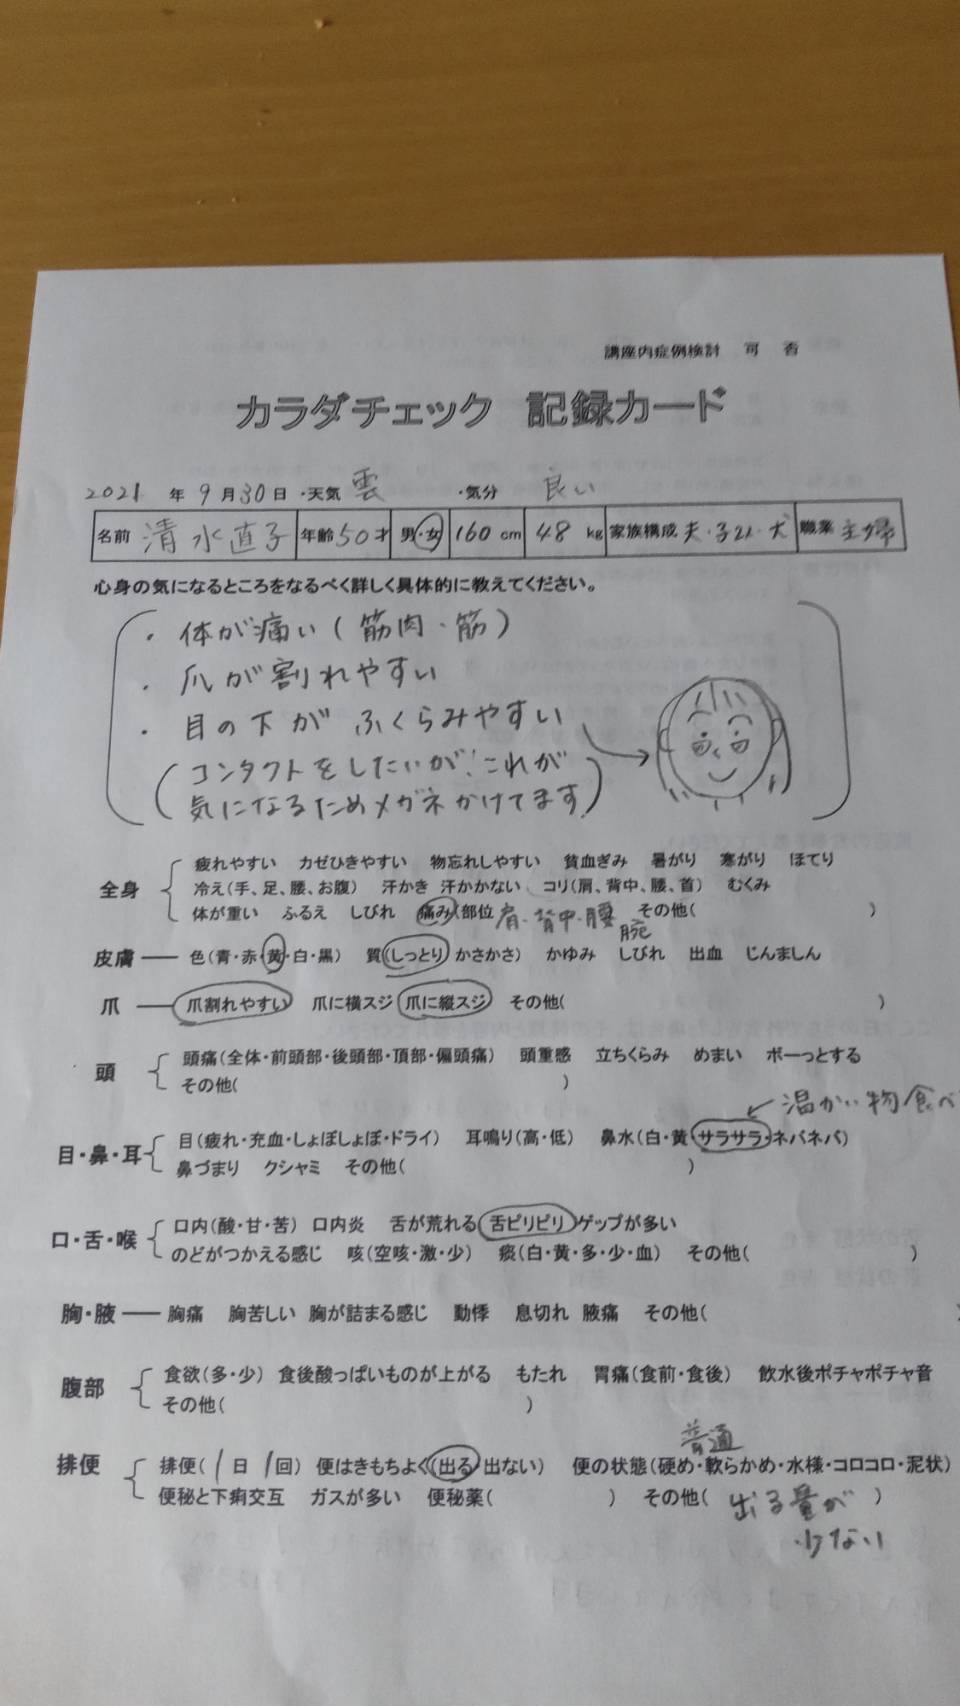 講座内症例検討 可 否
カラダチェック 記録カード
2021 年 9 月 30 日 ・天気 雲 ・気分 良い
名前 清水直子 年齢 50 才 男・女 160 cm 48 kg 家族構成 夫・子2人・犬 職業 主婦
心身の気になるところをなるべく詳しく具体的に教えてください。
・体が痛い(筋肉・筋)
・爪が割れやすい
・目の下が ふくらみやすい
(コンタクトをしたいが、これが
気になるためメガネかけてます)
疲れやすい カゼひきやすい 物忘れしやすい 貧血ぎみ 暑がり 寒がり ほてり
全身 冷え(手、足、腰、お腹) 汗かき 汗かかない コリ(肩、背中、腰、首) むくみ
体が重い ふるえ しびれ 痛み(部位 肩・背中・腰 その他( )
腕
皮膚 色(青・赤・黄・白・黒) 質(しっとり かさかさ) かゆみ しびれ 出血 じんましん
爪 爪割れやすい 爪に横スジ 爪に縦スジ その他( )
頭 頭痛(全体・前頭部・後頭部・頂部・偏頭痛) 頭重感 立ちくらみ めまい ボーっとする
その他( )
温かい物食べ
目・鼻・耳 目(疲れ・充血・しょぼしょぼ・ドライ) 耳鳴り(高・低) 鼻水(白・黄 サラサラ・ネバネバ)
鼻づまり クシャミ その他( )
口・舌・喉 口内(酸・甘・苦) 口内炎 舌が荒れる 舌ピリピリ ゲップが多い
のどがつかえる感じ 咳(空咳・激・少) 痰(白・黄・多・少・血) その他( )
胸・腋 胸痛 胸苦しい 胸が詰まる感じ 動悸 息切れ 腋痛 その他( )
腹部 食欲(多・少) 食後酸っぱいものが上がる もたれ 胃痛(食前・食後) 飲水後ポチャポチャ音
その他( )
普通
排便 排便( 1 日 1 回) 便はきもちよく(出る 出ない) 便の状態(硬め・軟らかめ・水様・コロコロ・泥状)
便秘と下痢交互 ガスが多い 便秘薬( ) その他( 出る量が )
少ない